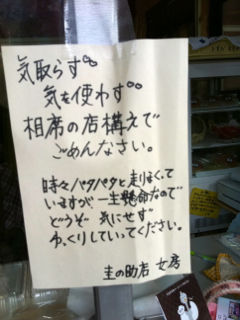 気取らず
気を使わず
相席の店構えで
ごめんなさい。
時々バタバタと走りまくって
いますが一生懸命なので
どうぞ 気にせず
ゆっくりしていってください。
圭の助店 女房